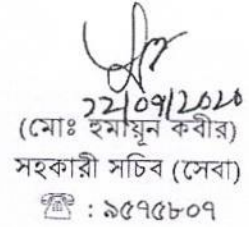 22/09/2020
(মোঃ হুমায়ূন কবীর)
সহকারী সচিব (সেবা)
☎ : ৯৫৭৫৮০৭